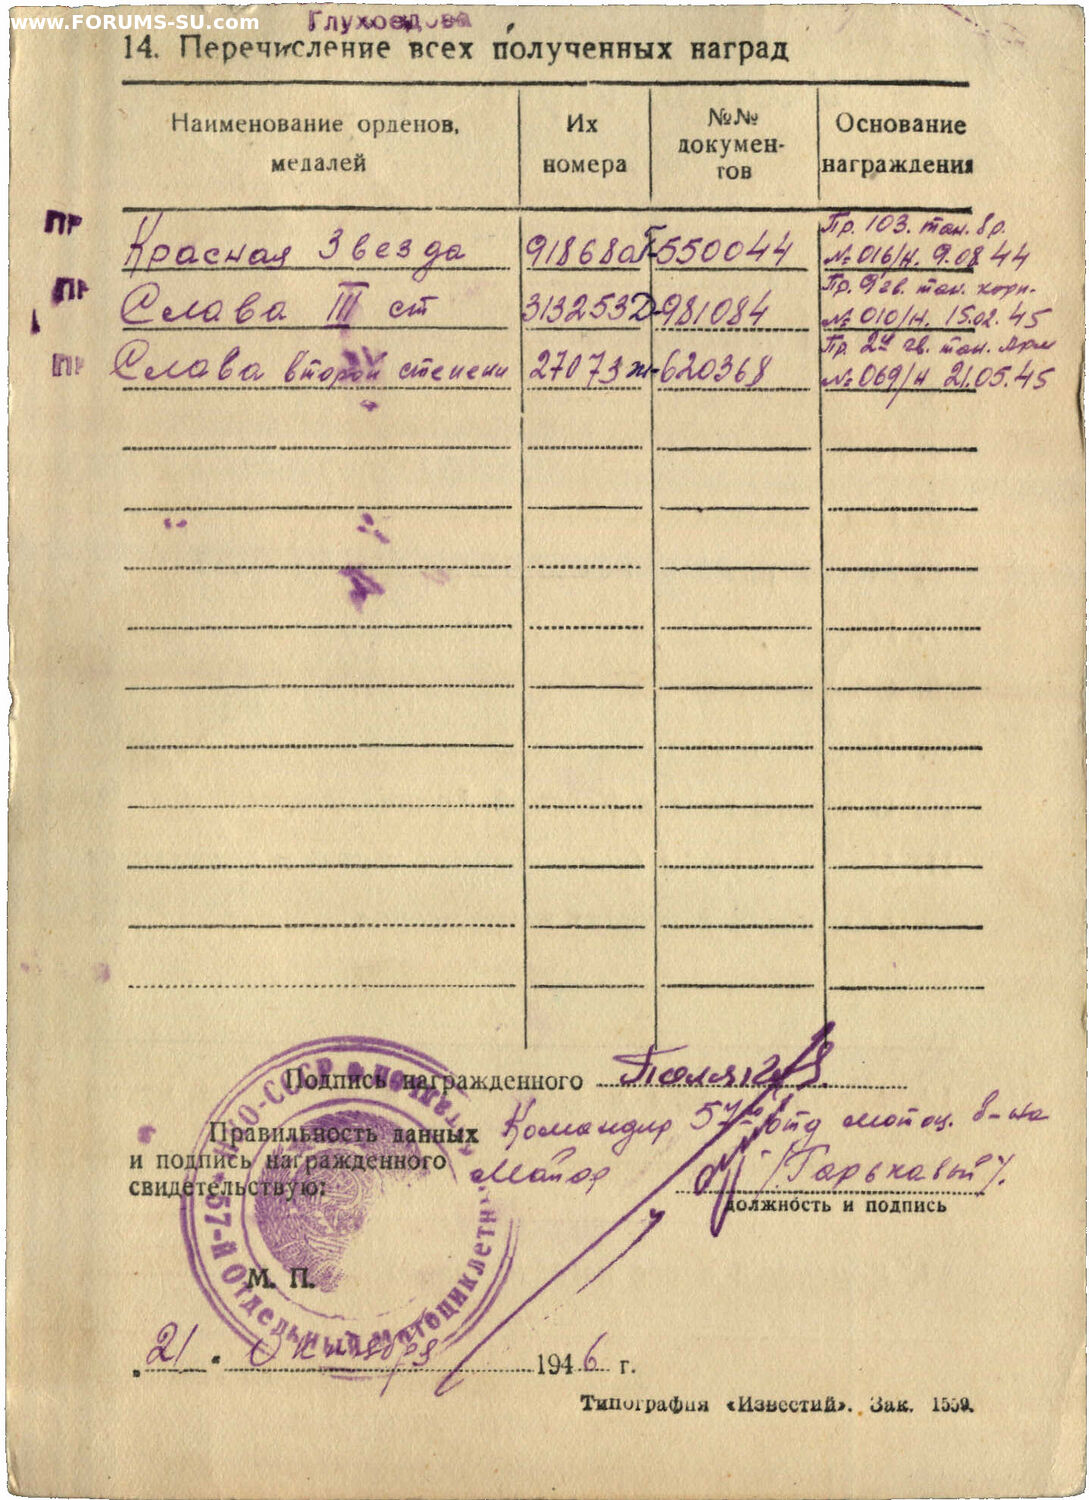 www.FORUMS-SU.com
Глухоедова
14. Перечисление всех полученных наград
Наименование орденов, медалей
Их номера
№№ докумен-тов
Основание награждения
ПР
Красная Звезда 918680 Г-550044 Пр. 103. тан. бр. № 016/н. 9.08.44
ПР
Слава III ст 313253 Д-981084 Пр. 9 гв. тан. корп. № 010/н. 15.02.45
ПР
Слава второй степени 27073 ж-620368 Пр. 2й гв. тан. Арм № 069/н 21.05.45
Подпись награжденного
Правильность данных Командир 57го отд мотоц. б-на
и подпись награжденного Майор /Горькавый/.
свидетельствую:
должность и подпись
НКО-СССР
57-й Отдельный Мотоциклетн
М. П.
„21“ Октября 1946 г.
Типография «Известий». Зак. 1559.